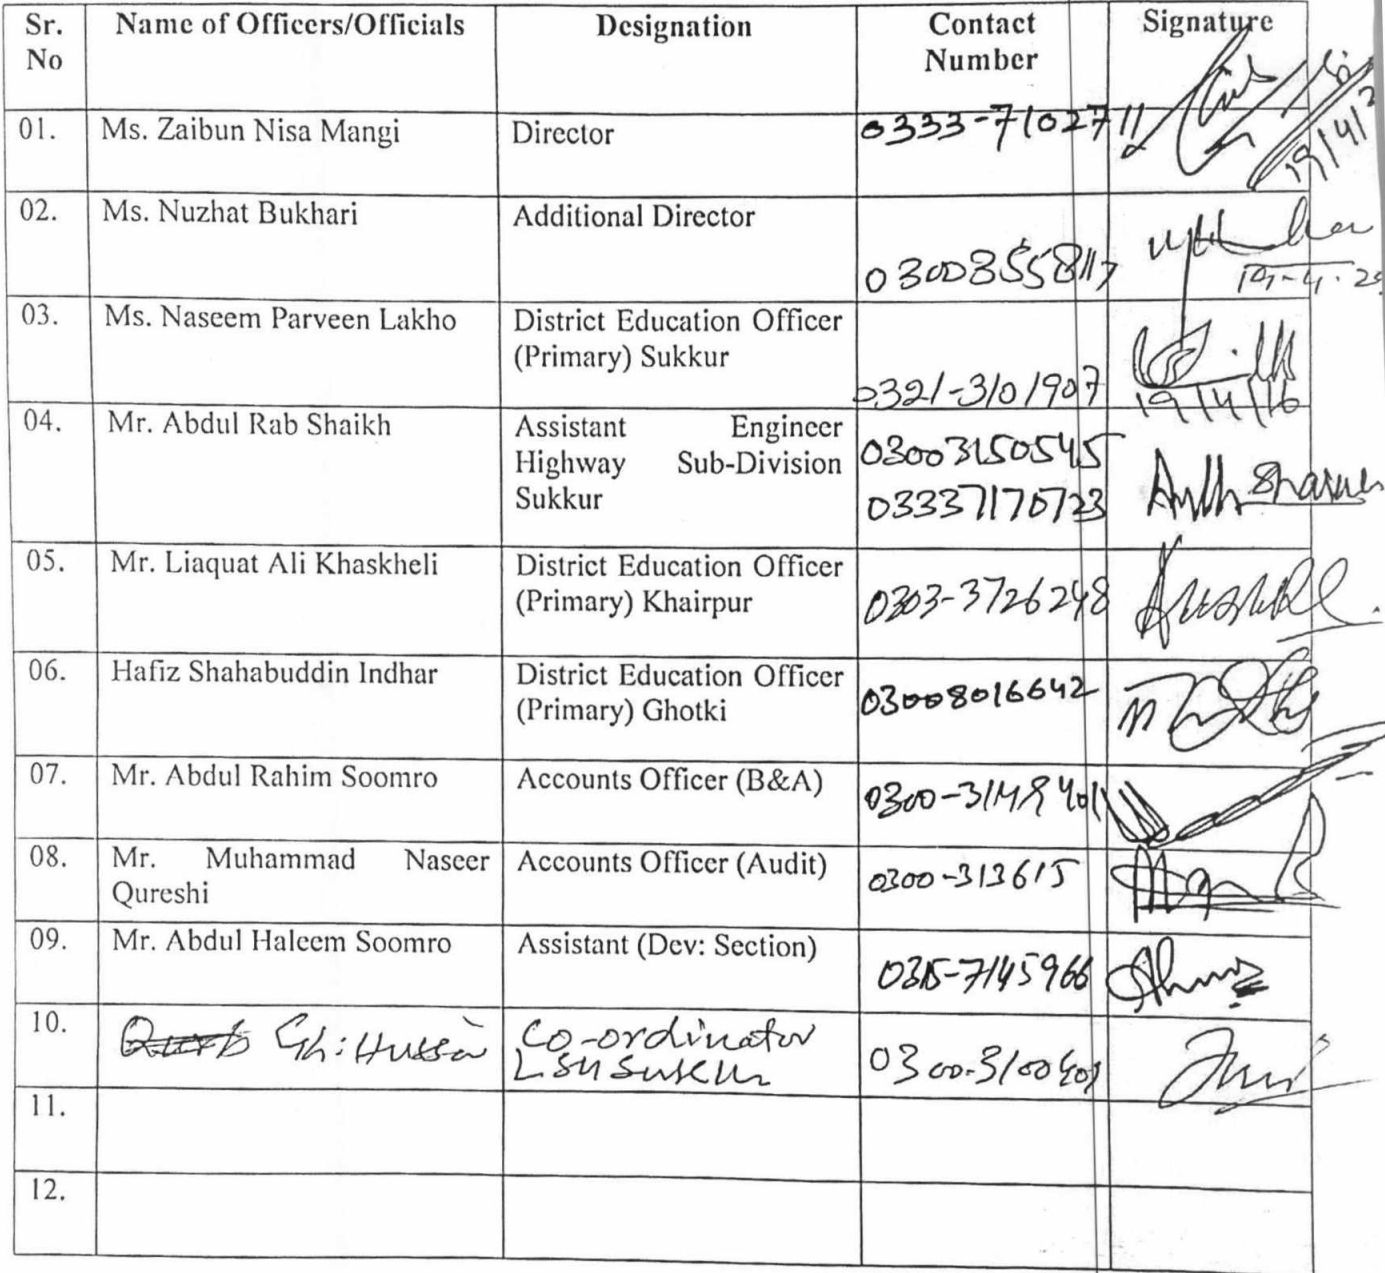 Sr. No
Name of Officers/Officials
Designation
Contact Number
Signature
01.
Ms. Zaibun Nisa Mangi
Director
0333-7102711
02.
Ms. Nuzhat Bukhari
Additional Director
03008558117
19-4-
03.
Ms. Naseem Parveen Lakho
District Education Officer
(Primary) Sukkur
0321-3101907
19/4/16
04.
Mr. Abdul Rab Shaikh
Assistant Engineer
Highway Sub-Division
Sukkur
03003150545
03337170723
05.
Mr. Liaquat Ali Khaskheli
District Education Officer
(Primary) Khairpur
0303-3726248
06.
Hafiz Shahabuddin Indhar
District Education Officer
(Primary) Ghotki
03008016642
07.
Mr. Abdul Rahim Soomro
Accounts Officer (B&A)
08.
Mr. Muhammad Naseer
Qureshi
Accounts Officer (Audit)
0300-313615
09.
Mr. Abdul Haleem Soomro
Assistant (Dev: Section)
0315-7145966
10.
Gh: Hussain
Co-ordinator
LSU Sukkur
11.
12.